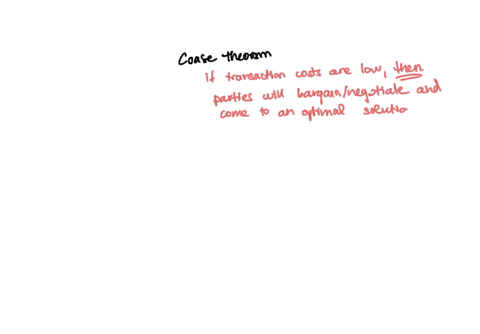 Coase theorem
if transaction costs are low, then
parties will bargain/negotiate and
come to an optimal solutio